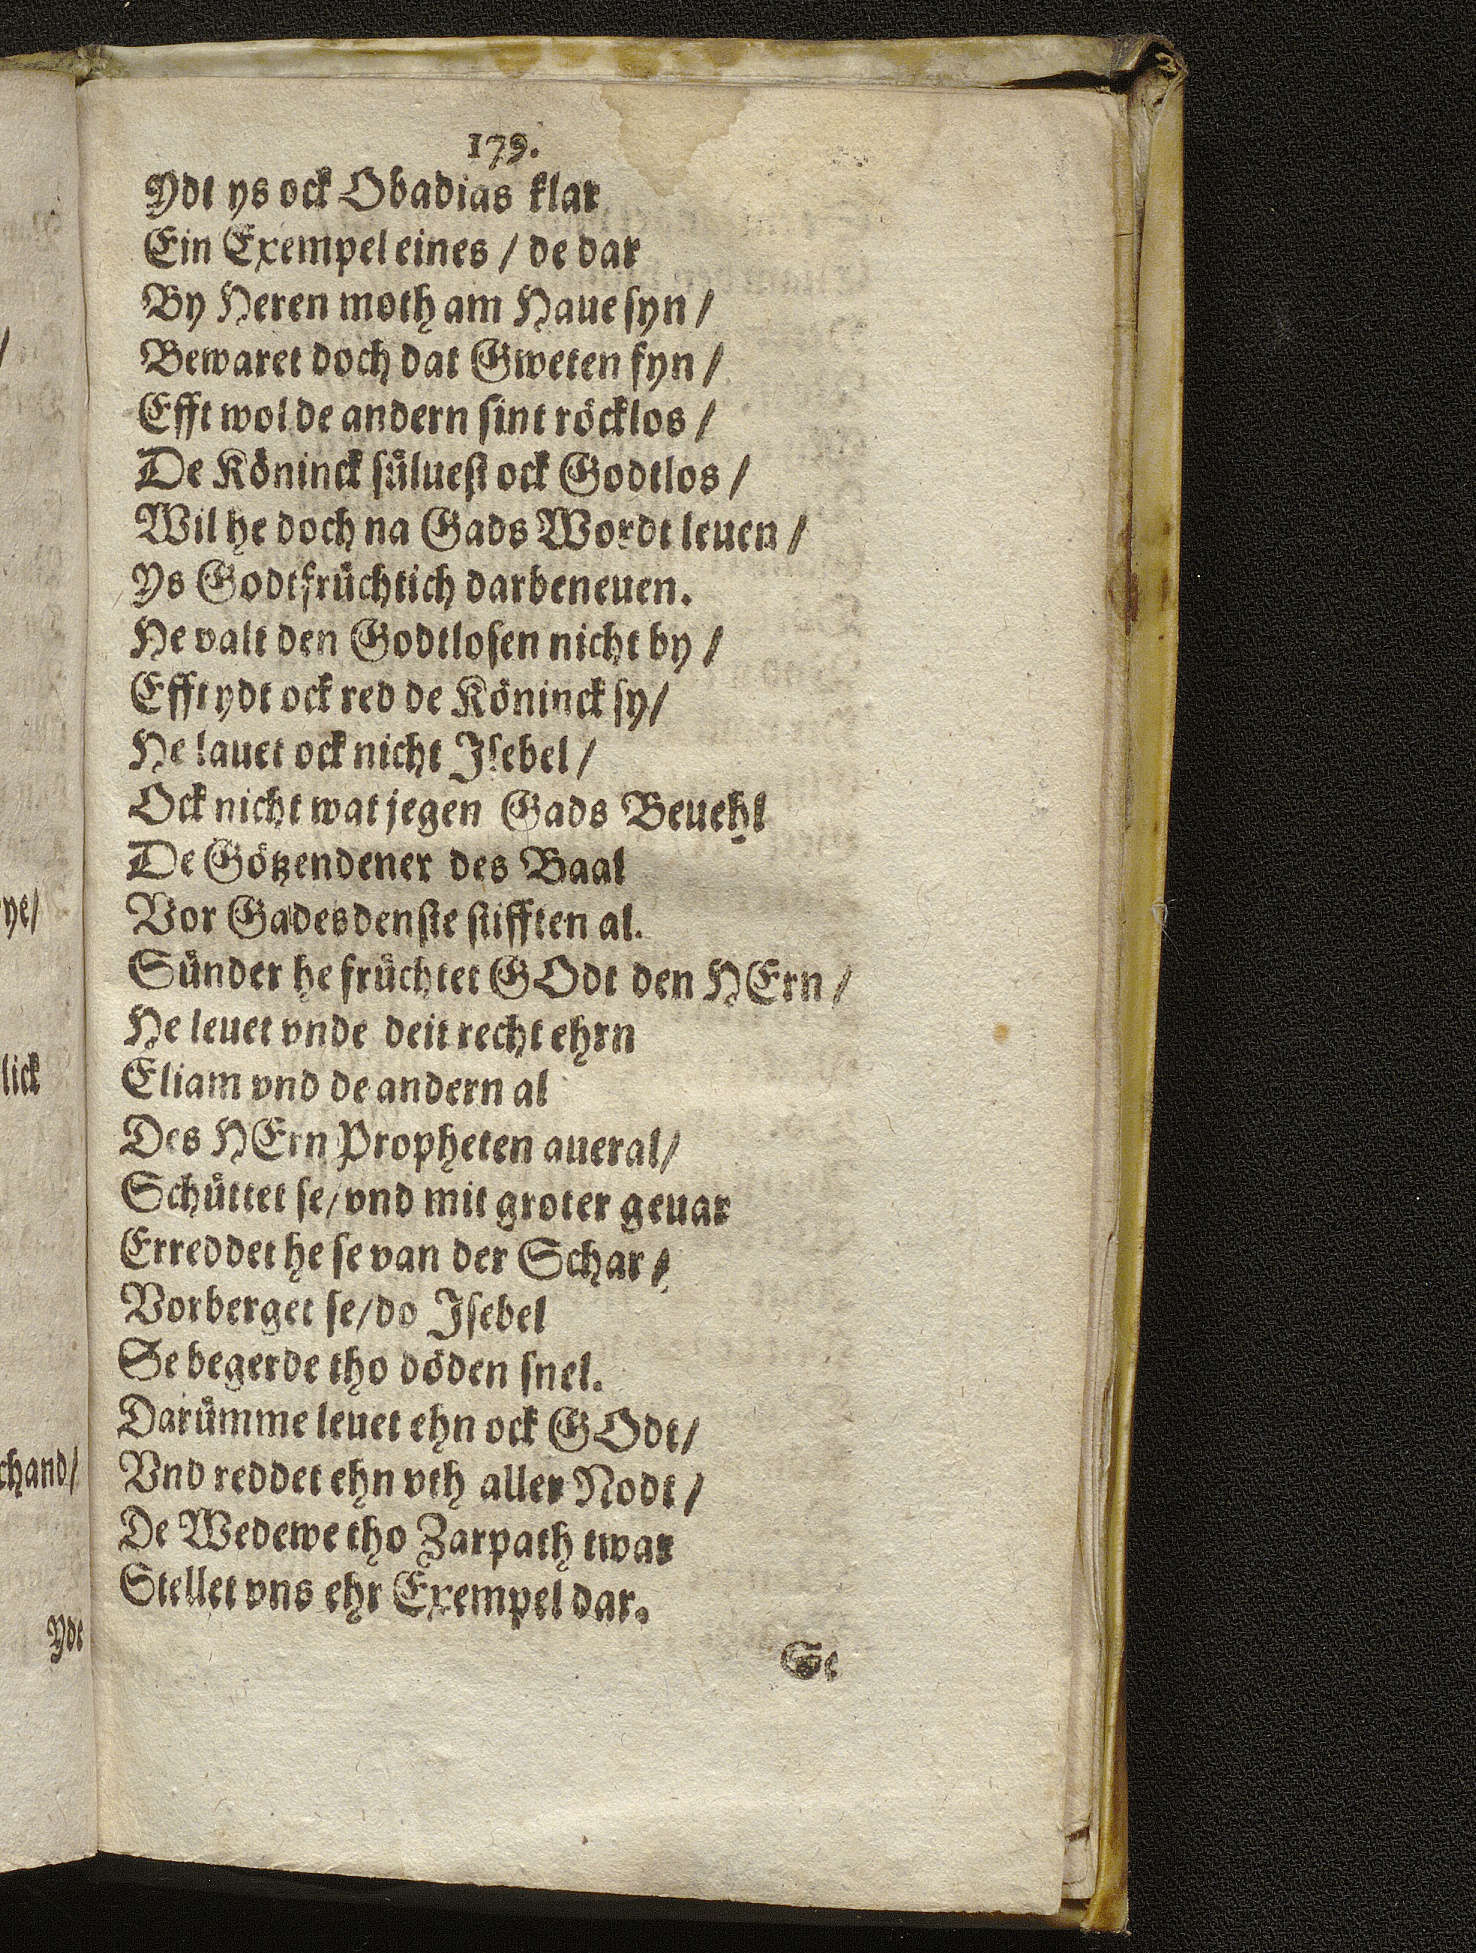 179.
Ydt ys ock Obadias klar
Ein Exempel eines / de dar
By Heren moth am Haue ſyn /
Bewaret doch dat Gweten fyn /
Efft wol de andern ſint röcklos /
De Köninck ſülueſt ock Godtlos /
Wil he doch na Gads Wordt leuen /
Ys Godtfrüchtich darbeneuen.
He valt den Godtloſen nicht by /
Efft ydt ock red de Köninck ſy /
He lauet ock nicht Jſebel /
Ock nicht wat jegen Gads Beuehl
De Götzendener des Baal
Vor Gadesdenſte ſtifften al.
Sünder he früchtet GOdt den HErn /
He leuet vnde deit recht ehrn
Eliam vnd de andern al
Des HErn Propheten aueral /
Schüttet ſe / vnd mit groter geuar
Erreddet he ſe van der Schar /
Vorberget ſe / do Jſebel
Se begerde tho döden ſnel.
Darümme leuet ehn ock GOdt /
Vnd reddet ehn vth aller Nodt /
De Wedewe tho Zarpath twar
Stellet vns ehr Exempel dar.
Se
ye /
lick
chand /
Ydt